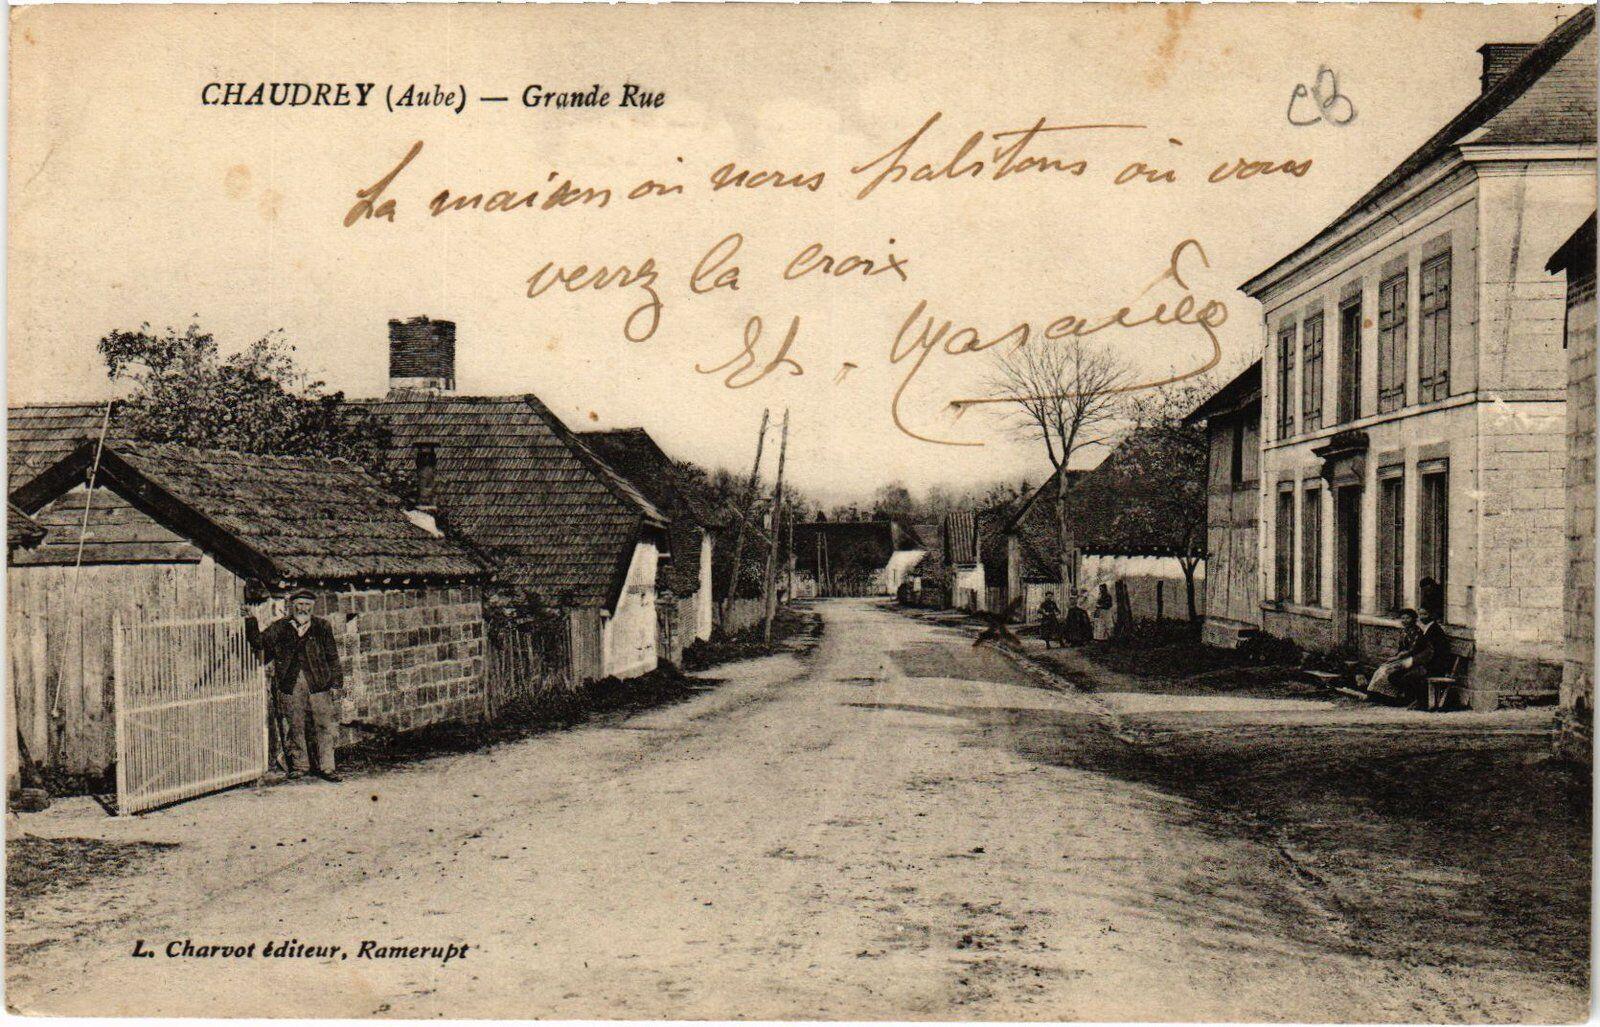 CHAUDREY (Aube) — Grande Rue
CB
La maison où nous habitons où vous
verrez la croix
L. Charvot éditeur, Ramerupt